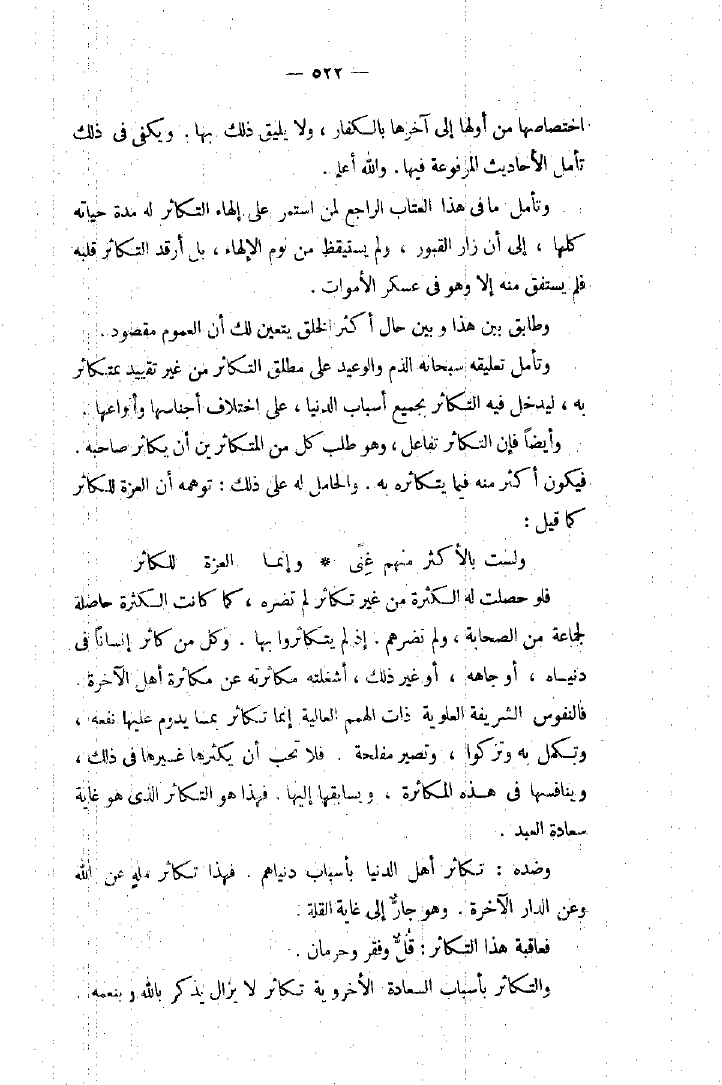 — ٥٢٢ —
اختصاصها من أولها إلى آخرها بالكفار ، ولا يليق ذلك بها . ويكفى فى ذلك
تأمل الأحاديث المرفوعة فيها . والله أعلم .
وتأمل ما فى هذا العتاب الراجع لمن استمر على إلهاء التكاثر له مدة حياته
كلها ، إلى أن زار القبور ، ولم يستيقظ من نوم الإلهاء ، بل أرقد التكاثر قلبه
فلم يستفق منه إلا وهو فى عسكر الأموات .
وطابق بين هذا و بين حال أكثر الخلق يتعين لك أن العموم مقصود .
وتأمل تعليقه سبحانه الذم والوعيد على مطلق التكاثر من غير تقييد بمتكاثر
به ، ليدخل فيه التكاثر بجميع أسباب الدنيا ، على اختلاف أجناسها وأنواعها .
وأيضاً فإن التكاثر تفاعل ، وهو طلب كل من المتكاثرين أن يكاثر صاحبه .
فيكون أكثر منه فيما يتكاثره به . والحامل له على ذلك : توهمه أن العزة للكاثر
كما قيل :
ولست بالأكثر منهم غِنًى * وإنما العزة للكاثر
فلو حصلت له الكثرة من غير تكاثر لم تضره ، كما كانت الكثرة حاصلة
لجماعة من الصحابة ، ولم تضرهم . إذ لم يتكاثروا بها . وكل من كاثر إنساناً فى
دنياه ، أو جاهه ، أو غير ذلك ، أشغلته مكاثرته عن مكاثرة أهل الآخرة .
فالنفوس الشريفة العلوية ذات الهمم العالية إنما تكاثر بما يدوم عليها نفعه ،
وتكمل به وتزكوا ، وتصير مفلحة . فلا تحب أن يكثرها غيرها فى ذلك ،
وينافسها فى هذه المكاثرة ، ويسابقها إليها . فهذا هو التكاثر الذى هو غاية
سعادة العبد .
وضده : تكاثر أهل الدنيا بأسباب دنياهم . فهذا تكاثر مله عن الله
وعن الدار الآخرة . وهو جارٌّ إلى غاية القلة .
فعاقبة هذا التكاثر : قُلٌّ وفقر وحرمان .
والتكاثر بأسباب السعادة الأخروية تكاثر لا يزال يذكر بالله و بنعمه .